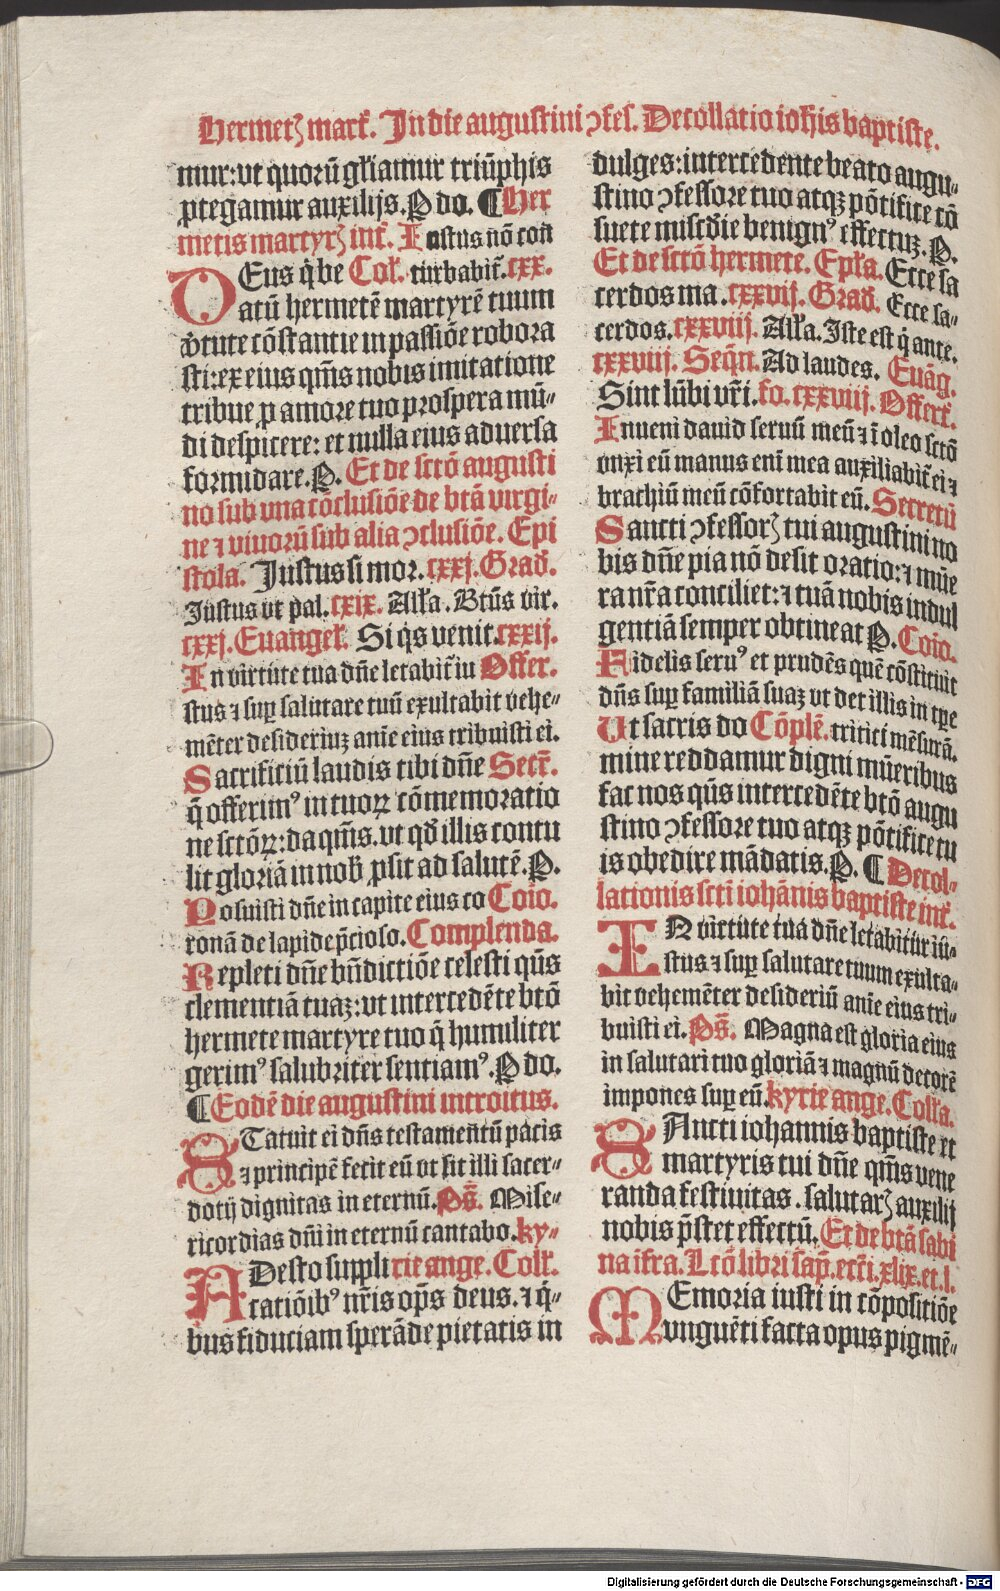 Hermetꝫ mart̃. In die augustini ↄfes. Decollatio ioħis baptiste.
mur: vt quorū gl̃iamur triūphis
ꝓtegamur auxilijs. P̱ do. ¶ Her
metis martyrꝫ int̃. Iustus nō con
DEus q̃ be Coł. turbabit̃. cxx.
atū hermetē martyrē tuum
v̓tute cōstantie in passiōe robora
sti: ex eius qm̃s nobis imitatione
tribue ꝓ amore tuo prospera mū-
di despicere: et nulla eius aduersa
formidare. P̱. Et de sctō augusti
no sub vna cōclusiōe de btā virgi-
ne ⁊ viuorū sub alia ↄclusiōe. Epi
stola. Iustus si mor. cxxj. Grad̓.
Iustus vt pal. cxix. Ałła. Btūs vir.
cxxj. Euangeł. Si q̓s venit. cxxij.
In virtute tua dn̄e letabit̃ iu Offer.
stus ⁊ suꝑ salutare tuū exultabit vehe-
mēter desideriuꝫ anīe eius tribuisti ei.
Sacrificiū laudis tibi dn̄e Secr̄.
q̄ offerim⁹ in tuoꝝ cōmemoratio
ne sctōꝝ: da qm̃s. vt qd̓ illis contu
lit gloriā in nob̓ ꝓsit ad salutē. P̱.
Posuisti dn̄e in capite eius co Coīo.
ronā de lapide p̄cioso. Complenda.
Repleti dn̄e bn̄dictiōe celesti qūs
clementiā tuaꝫ: vt intercedēte btō
hermete martyre tuo q̄ humiliter
gerim⁹ salubriter sentiam⁹. P̱ do.
¶ Eodē die augustini introitus.
STatuit ei dn̄s testamentū pacis
⁊ principē fecit eū vt sit illi sacer-
dotij dignitas in eternū. Ps̄. Mise-
ricordias dn̄i in eternū cantabo. ky-
ADesto suppli rie ange. Coll̃.
catiōib⁹ nr̄is op̄s deus. ⁊ q̓-
bus fiduciam sperāde pietatis in
dulges: intercedente beato augu-
stino ↄfessore tuo atqꝫ pōtifice cō
suete misc̄die benign⁹ effectuꝫ. P̱.
Et de sctō hermete. Epła. Ecce sa
cerdos ma. cxxvij. Grad̓. Ecce sa-
cerdos. cxxviij. Ałła. Iste est q̓ ante.
cxxviij. Seq̄n. Ad laudes. Euāg.
Sint lūbi vr̄i. fo. cxxviij. Offert̃.
Inueni dauid seruū meū ⁊ ī oleo sctō
vnxi eū manus enī mea auxiliabit̃ ei ⁊
brachiū meū cōfortabit eū. Secretū
Sancti ↄfessorꝫ tui augustini no
bis dn̄e pia nō desit oratio: ⁊ mūe
ra nr̄a conciliet: ⁊ tuā nobis indul
gentiā semper obtineat P̱. Coīo.
Fidelis seru⁹ et prudēs quē cōstituit
dn̄s suꝑ familiā suaꝫ vt det illis in tꝑe
Vt sacris do Cōplē. tritici mēsurā.
mine reddamur digni mūeribus
fac nos qūs intercedēte btō augu
stino ↄfessore tuo atqꝫ pōtifice tu
is obedire mādatis. P̱. ¶ Decol-
lationis scti iohānis baptiste int̃.
IN virtute tua dn̄e letabitur iū-
stus ⁊ suꝑ salutare tuum exulta-
bit vehemēter desideriū anīe eius tri-
buisti ei. Ps̄. Magna est gloria eius
in salutari tuo gloriā ⁊ magnū decorē
impones suꝑ eū. kyrie ange. Colła.
SAncti iohannis baptiste et
martyris tui dn̄e qm̃s vene
randa festiuitas. salutarꝫ auxilij
nobis p̄stet effectū. Et de btā sabi
na ifra. Lcō libri sap̄. ecc̄i. xlix. et. l.
MEmoria iusti in cōpositiōe
vnguēti facta opus pigmē-
Digitalisierung gefördert durch die Deutsche Forschungsgemeinschaft - DFG